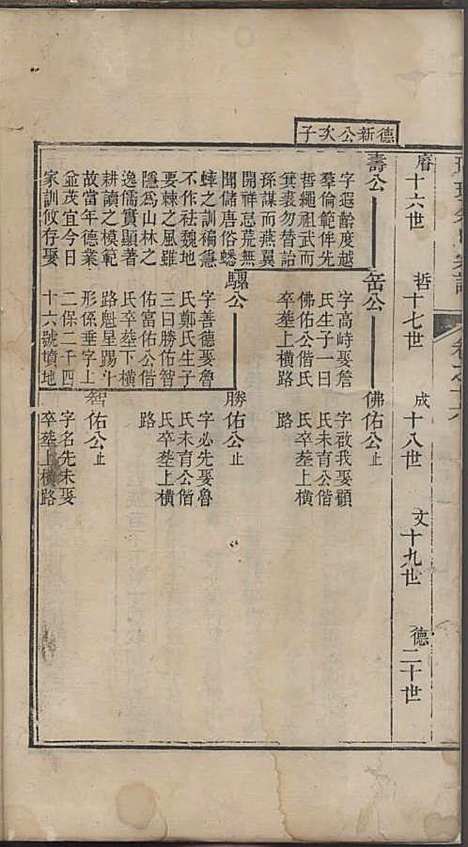 德新公次子
睿十六世
哲十七世
成十八世
文十九世
德二十世
壽公
字遐齡度越
羣倫範俾先
哲繩祖武而
箕裘勿替詒
孫謀而燕翼
開祥忌荒無
聞儲唐俗蟋
蟀之訓褊急
不作祛魏地
要棘之風雖
隱爲山林之
逸儒實顯著
耕讀之模範
故當年德業
並茂宜今日
家訓攸存娶
岳公
字高峙娶詹
氏生子一曰
佛佑公偕氏
卒塟上橫路
佛佑公止
字啟我娶顧
氏未育公偕
氏卒塟上橫
路
騮公
字善德娶魯
氏鄭氏生子
三曰勝佑智
佑富佑公偕
氏卒塟下橫
路魁星踢斗
形係垂字上
二保二千四
十六號墳地
勝佑公止
字必先娶魯
氏未育公偕
氏卒塟上橫
路
智佑公止
字名先未娶
卒塟上橫路